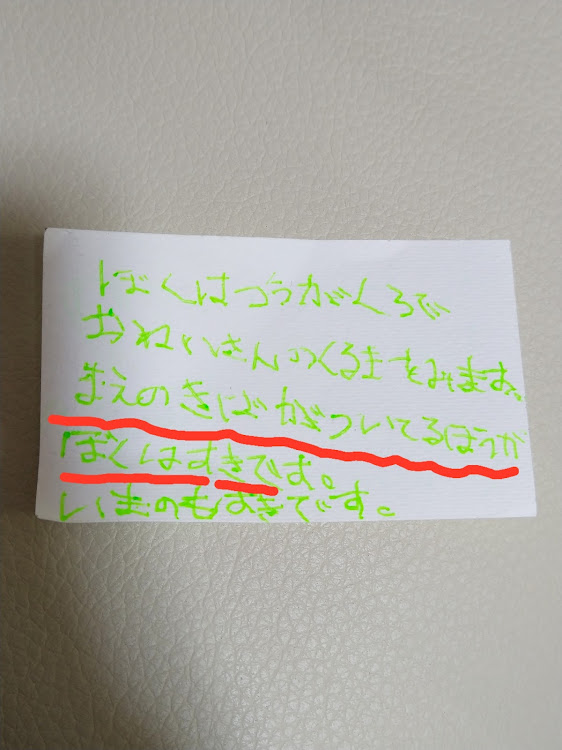 ぼくはつうがくろで
おねいさんのくるまをみます。
まえのきばがついてるほうが
ぼくはすきです。
いまのもすきです。